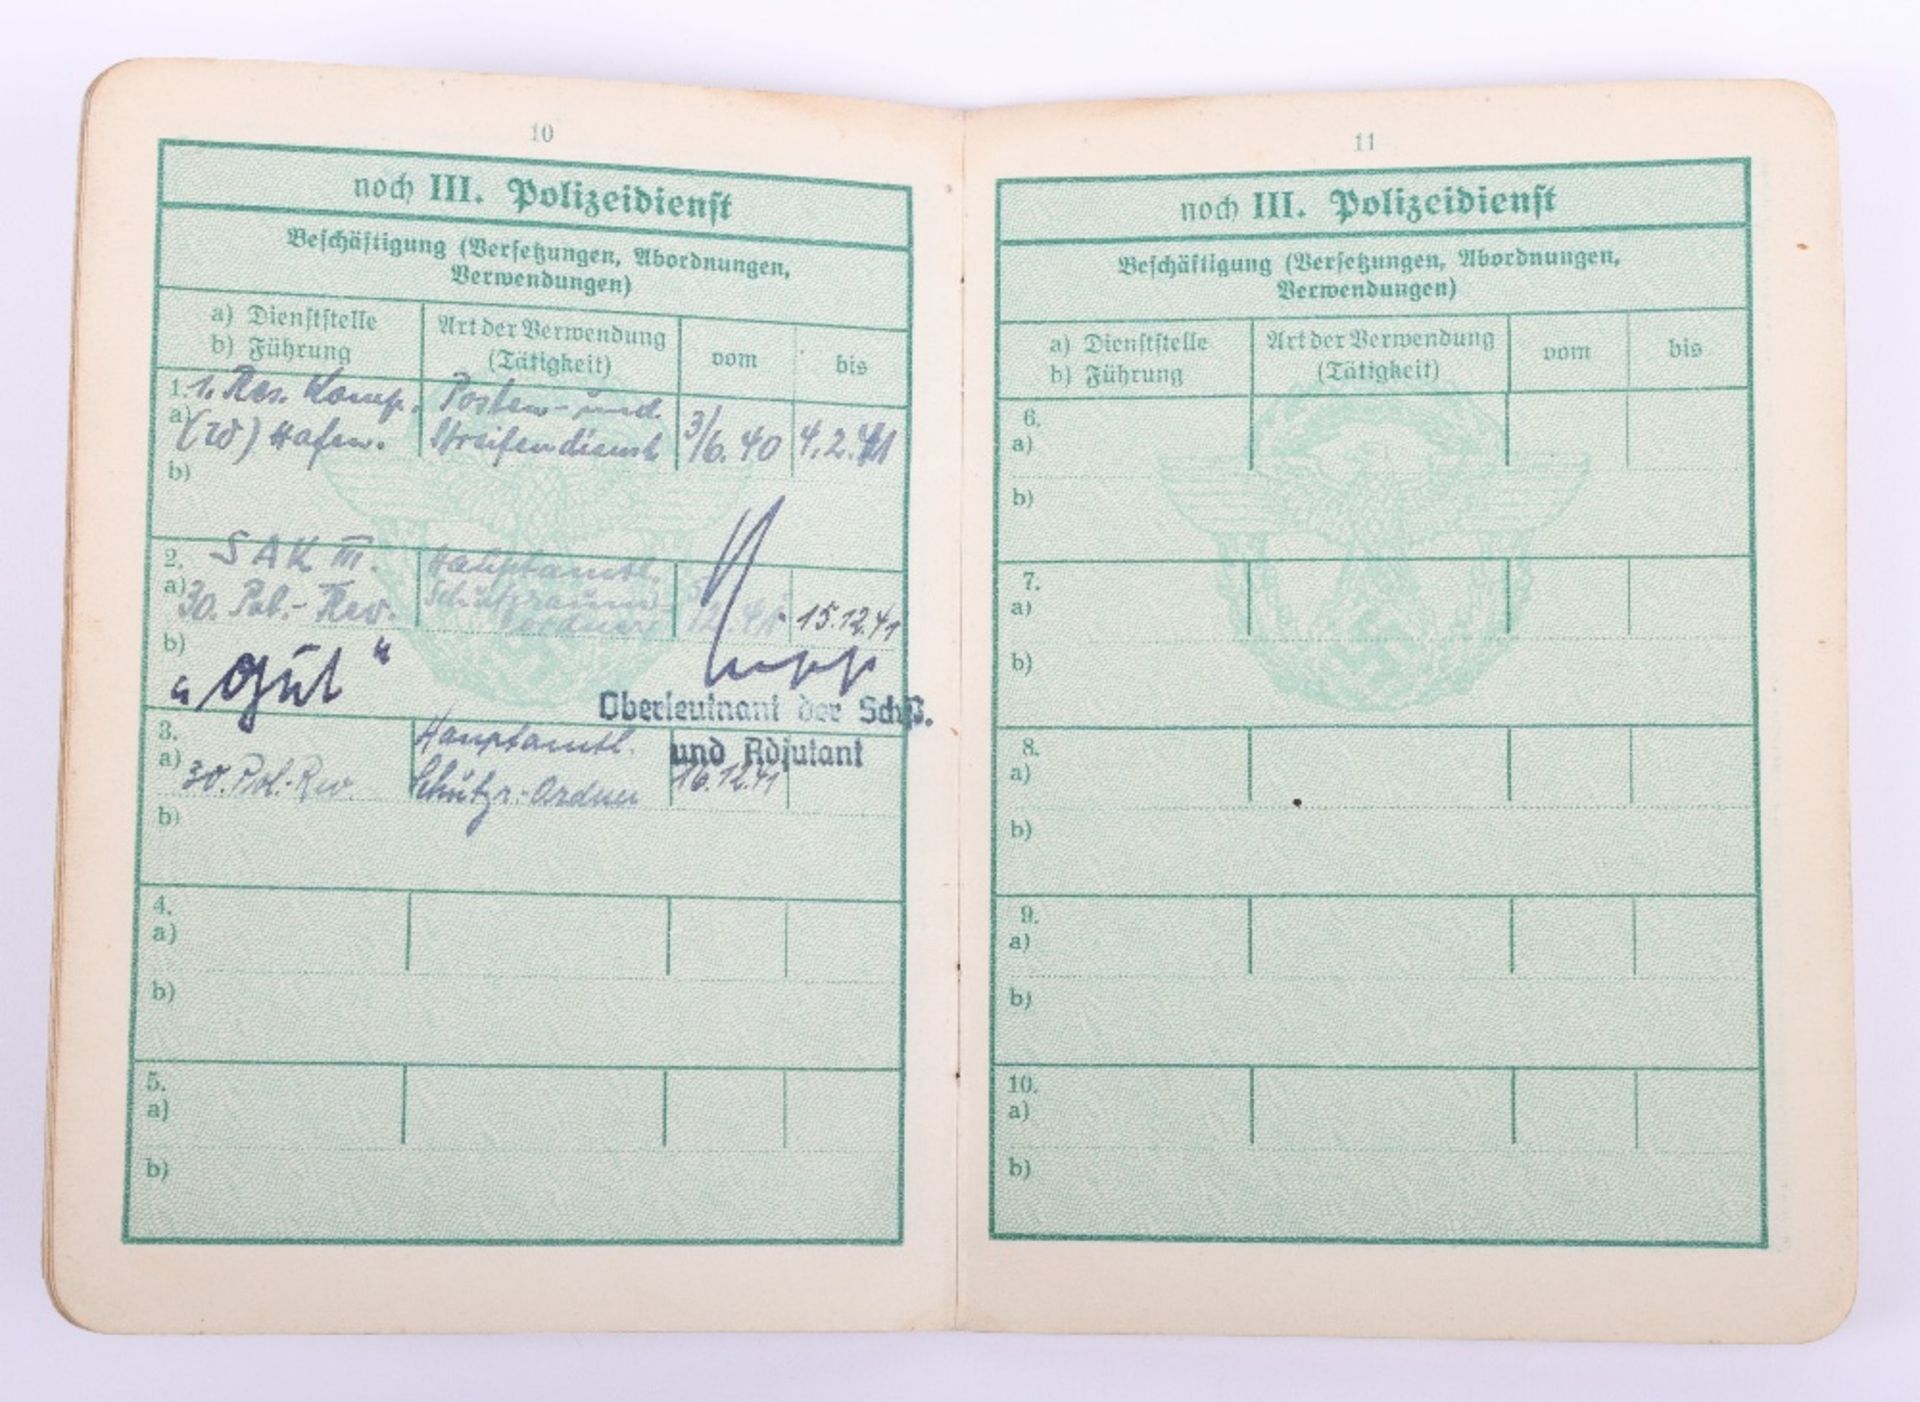 10
noch III. Polizeidienst
Beschäftigung (Versetzungen, Abordnungen,
Verwendungen)
a) Dienststelle
b) Führung
Art der Verwendung
(Tätigkeit)
vom
bis
1. 1. Res. Komp. Posten- und
a) (W) Hafen. Streifendienst 3/6.40 4.2.41
b)
2. SAK III. Hauptamtl.
a) 30. Pol.-Rev. Schutzraum-
ordner 15.12.41
b)
"Gut"
Oberleutnant der Schp.
und Adjutant
3. Hauptamtl.
a) 30. Pol.-Rev. Schutzr.-Ordner 16.12.41
b)
4.
a)
b)
5.
a)
b)
11
noch III. Polizeidienst
Beschäftigung (Versetzungen, Abordnungen,
Verwendungen)
a) Dienststelle
b) Führung
Art der Verwendung
(Tätigkeit)
vom
bis
6.
a)
b)
7.
a)
b)
8.
a)
b)
9.
a)
b)
10.
a)
b)